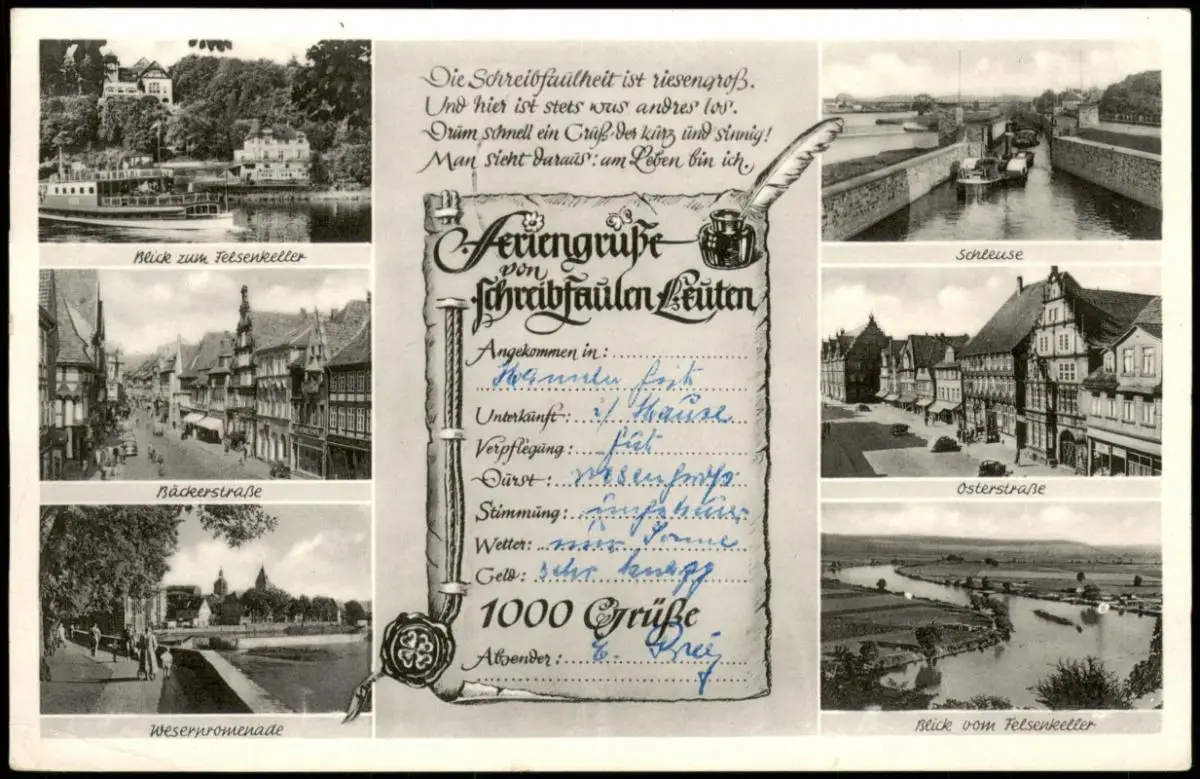 Die Schreibfaulheit ist riesengroß.
Und hier ist stets was andres los.
Drum schnell ein Gruß, der kurz und sinnig!
Man sieht daraus: am Leben bin ich.
Feriengrüße
von
schreibfaulen Leuten
Angekommen in:
Hameln
Unterkunft: i/ Hause
Verpflegung: gut
Durst: riesengroß
Stimmung:
Wetter: nur Sonne
Geld: sehr knapp
1000 Grüße
Absender:
Blick zum Felsenkeller
Bäckerstraße
Weserpromenade
Schleuse
Osterstraße
Blick vom Felsenkeller